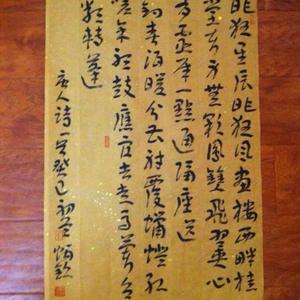 昨夜星辰昨夜風畫樓西畔桂
堂東身無彩鳳雙飛翼心
有靈犀一點通隔座送
鉤春酒暖分曹射覆蠟燈紅
嗟余聽鼓應官去走馬蘭台
類轉蓬
唐人詩一首癸巳初